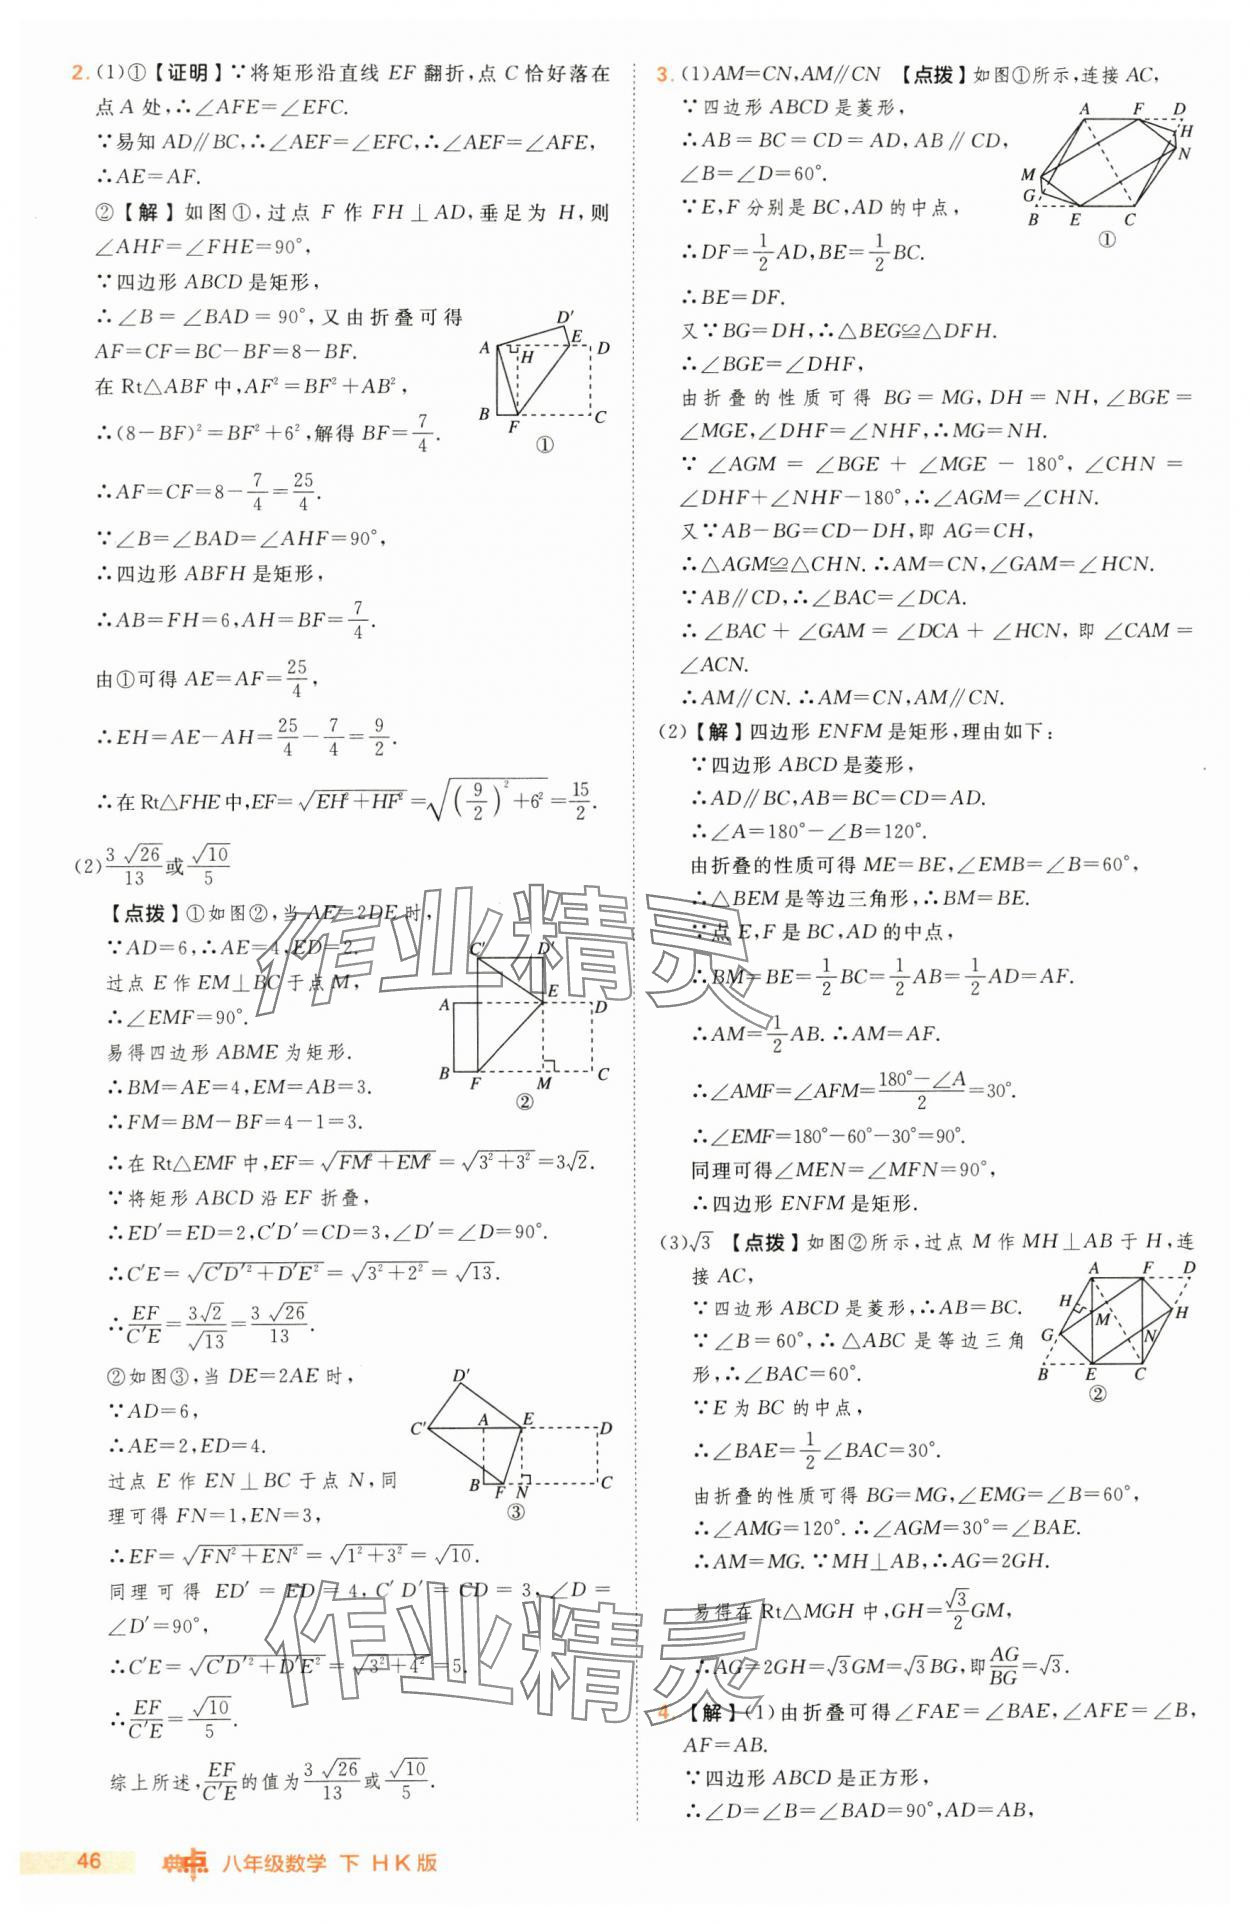 2. (1)①【证明】∵将矩形沿直线 EF 翻折,点 C 恰好落在
点 A 处,∴∠AFE=∠EFC.
∵易知 AD∥BC,∴∠AEF=∠EFC,∴∠AEF=∠AFE,
∴AE=AF.
②【解】如图①,过点 F 作 FH⊥AD,垂足为 H,则
∠AHF=∠FHE=90°,
∵四边形 ABCD 是矩形,
∴∠B=∠BAD=90°,又由折叠可得
AF=CF=BC-BF=8-BF.
在 Rt△ABF 中,AF²=BF²+AB²,
∴(8-BF)²=BF²+6²,解得 BF=7/4.
∴AF=CF=8-7/4=25/4.
∵∠B=∠BAD=∠AHF=90°,
∴四边形 ABFH 是矩形,
∴AB=FH=6,AH=BF=7/4.
由①可得 AE=AF=25/4,
∴EH=AE-AH=25/4-7/4=9/2.
∴在 Rt△FHE 中,EF=√(EH²+HF²)=√((9/2)²+6²)=15/2.
A H E D D′ B F C ①
(2)3√26/13或√10/5
【点拨】①如图②,当 AE=2DE 时,
∵AD=6,∴AE=4,ED=2.
过点 E 作 EM⊥BC 于点 M,
∴∠EMF=90°.
易得四边形 ABME 为矩形.
∴BM=AE=4,EM=AB=3.
∴FM=BM-BF=4-1=3.
C′ D′ A E D B F M C ②
∴在 Rt△EMF 中,EF=√(FM²+EM²)=√(3²+3²)=3√2.
∵将矩形 ABCD 沿 EF 折叠,
∴ED′=ED=2,C′D′=CD=3,∠D′=∠D=90°.
∴C′E=√(C′D′²+D′E²)=√(3²+2²)=√13.
∴EF/C′E=3√2/√13=3√26/13.
②如图③,当 DE=2AE 时,
∵AD=6,
∴AE=2,ED=4.
过点 E 作 EN⊥BC 于点 N,同
理可得 FN=1,EN=3,
D′ C′ A E D B F N C ③
∴EF=√(FN²+EN²)=√(1²+3²)=√10.
同理可得 ED′=ED=4,C′D′=CD=3,∠D=
∠D′=90°,
∴C′E=√(C′D′²+D′E²)=√(3²+4²)=5.
∴EF/C′E=√10/5.
综上所述,EF/C′E的值为3√26/13或√10/5.
3. (1)AM=CN,AM∥CN 【点拨】如图①所示,连接 AC,
∵四边形 ABCD 是菱形,
∴AB=BC=CD=AD,AB∥CD,
∠B=∠D=60°.
∵E,F 分别是 BC,AD 的中点,
∴DF=1/2AD,BE=1/2BC.
A F D H N M G B E C ①
∴BE=DF.
又∵BG=DH,∴△BEG≌△DFH.
∴∠BGE=∠DHF,
由折叠的性质可得 BG=MG,DH=NH,∠BGE=
∠MGE,∠DHF=∠NHF,∴MG=NH.
∵∠AGM=∠BGE+∠MGE-180°,∠CHN=
∠DHF+∠NHF-180°,∴∠AGM=∠CHN.
又∵AB-BG=CD-DH,即 AG=CH,
∴△AGM≌△CHN.∴AM=CN,∠GAM=∠HCN.
∵AB∥CD,∴∠BAC=∠DCA.
∴∠BAC+∠GAM=∠DCA+∠HCN,即∠CAM=
∠ACN.
∴AM∥CN.∴AM=CN,AM∥CN.
(2)【解】四边形 ENFM 是矩形,理由如下:
∵四边形 ABCD 是菱形,
∴AD∥BC,AB=BC=CD=AD.
∴∠A=180°-∠B=120°.
由折叠的性质可得 ME=BE,∠EMB=∠B=60°,
∴△BEM 是等边三角形,∴BM=BE.
∵点 E,F 是 BC,AD 的中点,
∴BM=BE=1/2BC=1/2AB=1/2AD=AF.
∴AM=1/2AB.∴AM=AF.
∴∠AMF=∠AFM=(180°-∠A)/2=30°.
∴∠EMF=180°-60°-30°=90°.
同理可得∠MEN=∠MFN=90°,
∴四边形 ENFM 是矩形.
(3)√3 【点拨】如图②所示,过点 M 作 MH⊥AB 于 H,连
接 AC,
∵四边形 ABCD 是菱形,∴AB=BC.
∵∠B=60°,∴△ABC 是等边三角
形,∴∠BAC=60°.
∵E 为 BC 的中点,
A F D H M H G N B E C ②
∴∠BAE=1/2∠BAC=30°.
由折叠的性质可得 BG=MG,∠EMG=∠B=60°,
∴∠AMG=120°.∴∠AGM=30°=∠BAE.
∴AM=MG.∵MH⊥AB,∴AG=2GH.
易得在 Rt△MGH 中,GH=√3/2GM,
∴AG=2GH=√3GM=√3BG,即AG/BG=√3.
4. 【解】(1)由折叠可得∠FAE=∠BAE,∠AFE=∠B,
AF=AB.
∵四边形 ABCD 是正方形,
∴∠D=∠B=∠BAD=90°,AD=AB,
作业精灵
作业精灵
46 典中点 八年级数学 下 HK版